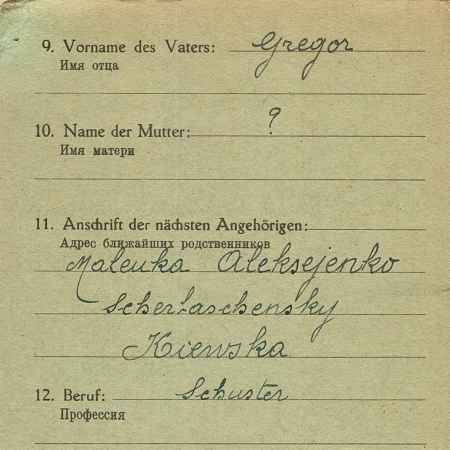 9. Vorname des Vaters: Gregor
Имя отца
10. Name der Mutter: ?
Имя матери
11. Anschrift der nächsten Angehörigen:
Адрес ближайших родственников
Malenka Aleksejenko
Scherbaschensky
Kiewska
12. Beruf: Schuster
Профессия